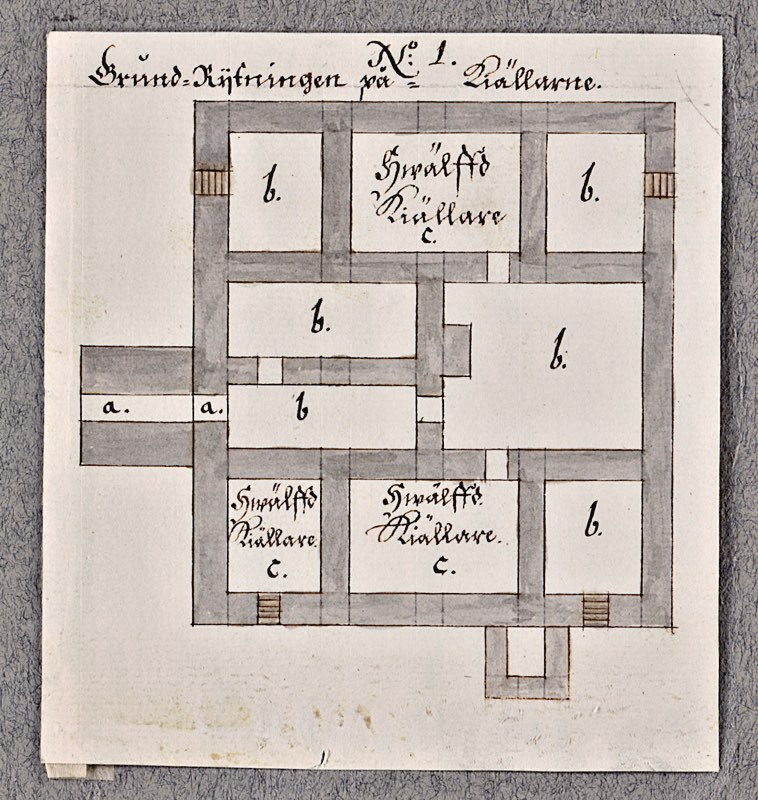 No: 1.
Grund=Rijtningen på= Kiällarne.
b.
Hwälffd
Kiällare
c.
b.
b.
b.
a.
a.
b
Hwälffd
Kiällare.
c.
Hwälffd.
Kiällare.
c.
b.